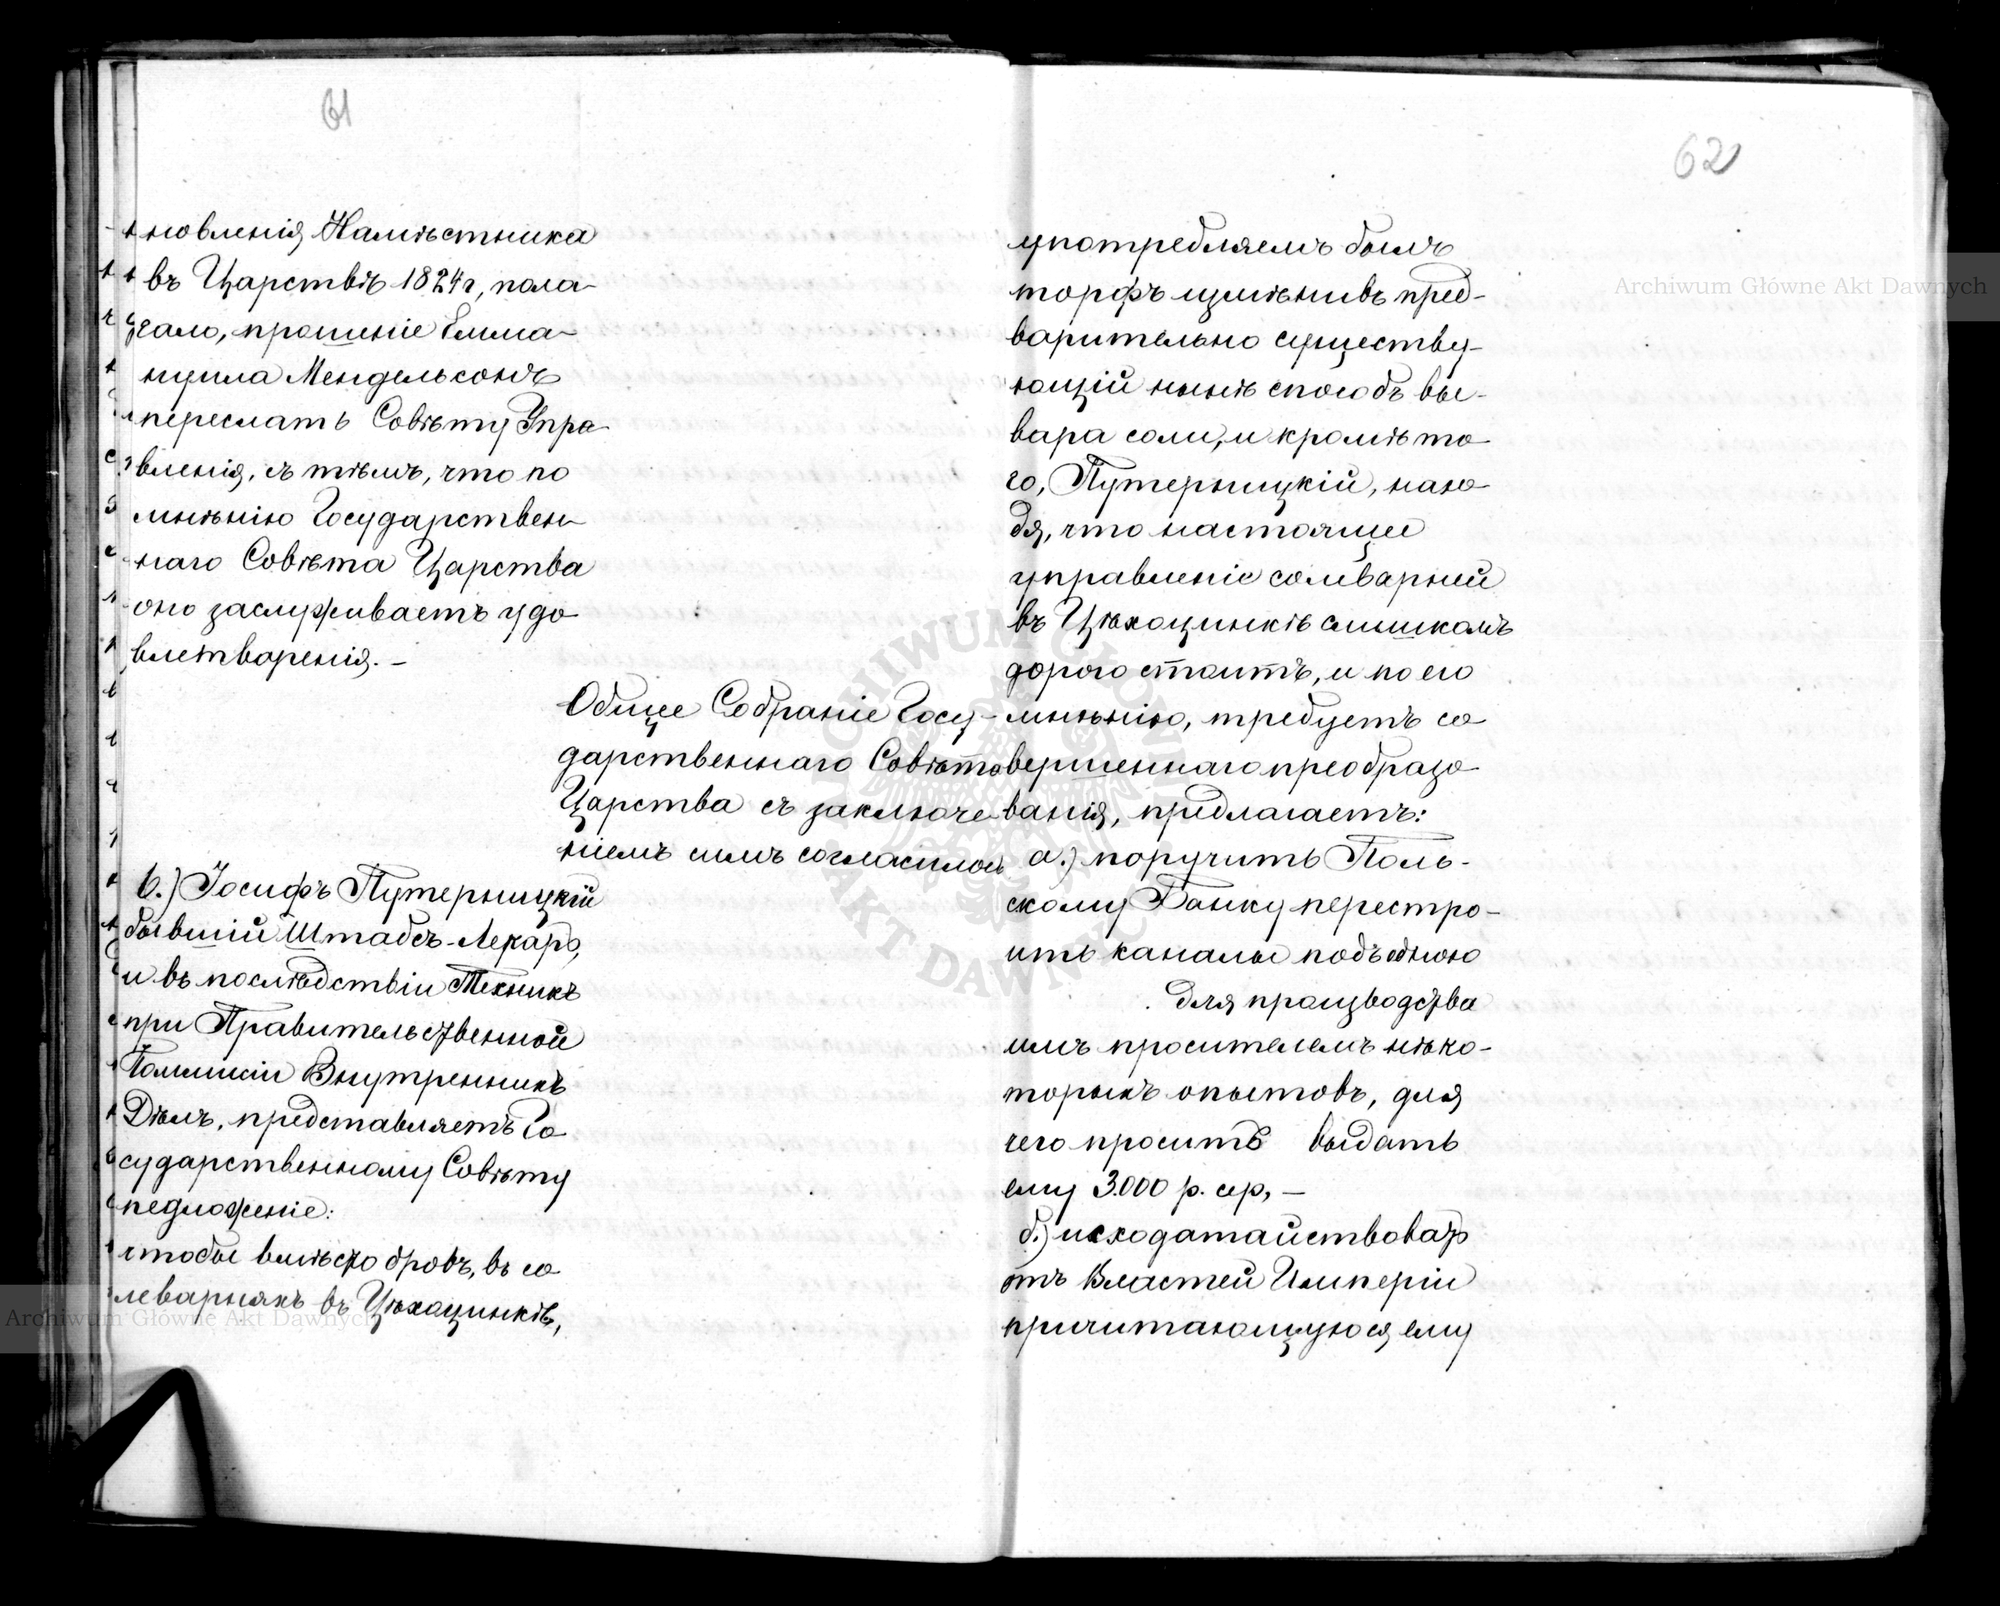 61
новленія Намѣстника
въ Царствѣ 1824 г, пола-
гало, прошеніе Емма-
нуила Мендельсонъ
переслать Совѣту Упра-
вленія, съ тѣмъ, что по
мнѣнію Государствен-
наго Совѣта Царства
оно заслуживаетъ удо-
влетворенія. –
Общее Собраніе Госу-
дарственнаго Совѣта
Царства съ заключе-
ніемъ симъ согласилось
6.) Іосифъ Путерницкій
бывшій Штабсъ-Лекарь,
и въ послѣдствіи Техникъ
при Правительственной
Коммисіи Внутреннихъ
Дѣлъ, представляетъ Го-
сударственному Совѣту
педложеніе:
чтобы вмѣсто дровъ, въ со-
леварняхъ въ Цѣхоцинкѣ,
62
употребляемъ былъ
торфъ измѣнивъ пред-
варительно существу-
ющій нынѣ способъ вы-
вара соли, и кромѣ то-
го, Путерницкій, нахо-
дя, что настоящее
управленіе солеварней
въ Цѣхоцинкѣ слишкомъ
дорого стоитъ, и по его
мнѣнію, требуетъ со-
вершеннаго преобразо-
ванія, предлагаетъ:
а.) поручить Поль-
скому Банку перестро-
ить каналы подъ одною
для производства
имъ просителемъ нѣко-
торыхъ опытовъ, для
чего проситъ выдать
ему 3.000 р. сер, –
б.) исходатайствовать
отъ Властей Имперіи
причитающуюся ему
Archiwum Główne Akt Dawnych
Archiwum Główne Akt Dawnych
ARCHIWUM GŁÓWNE AKT DAWNYCH